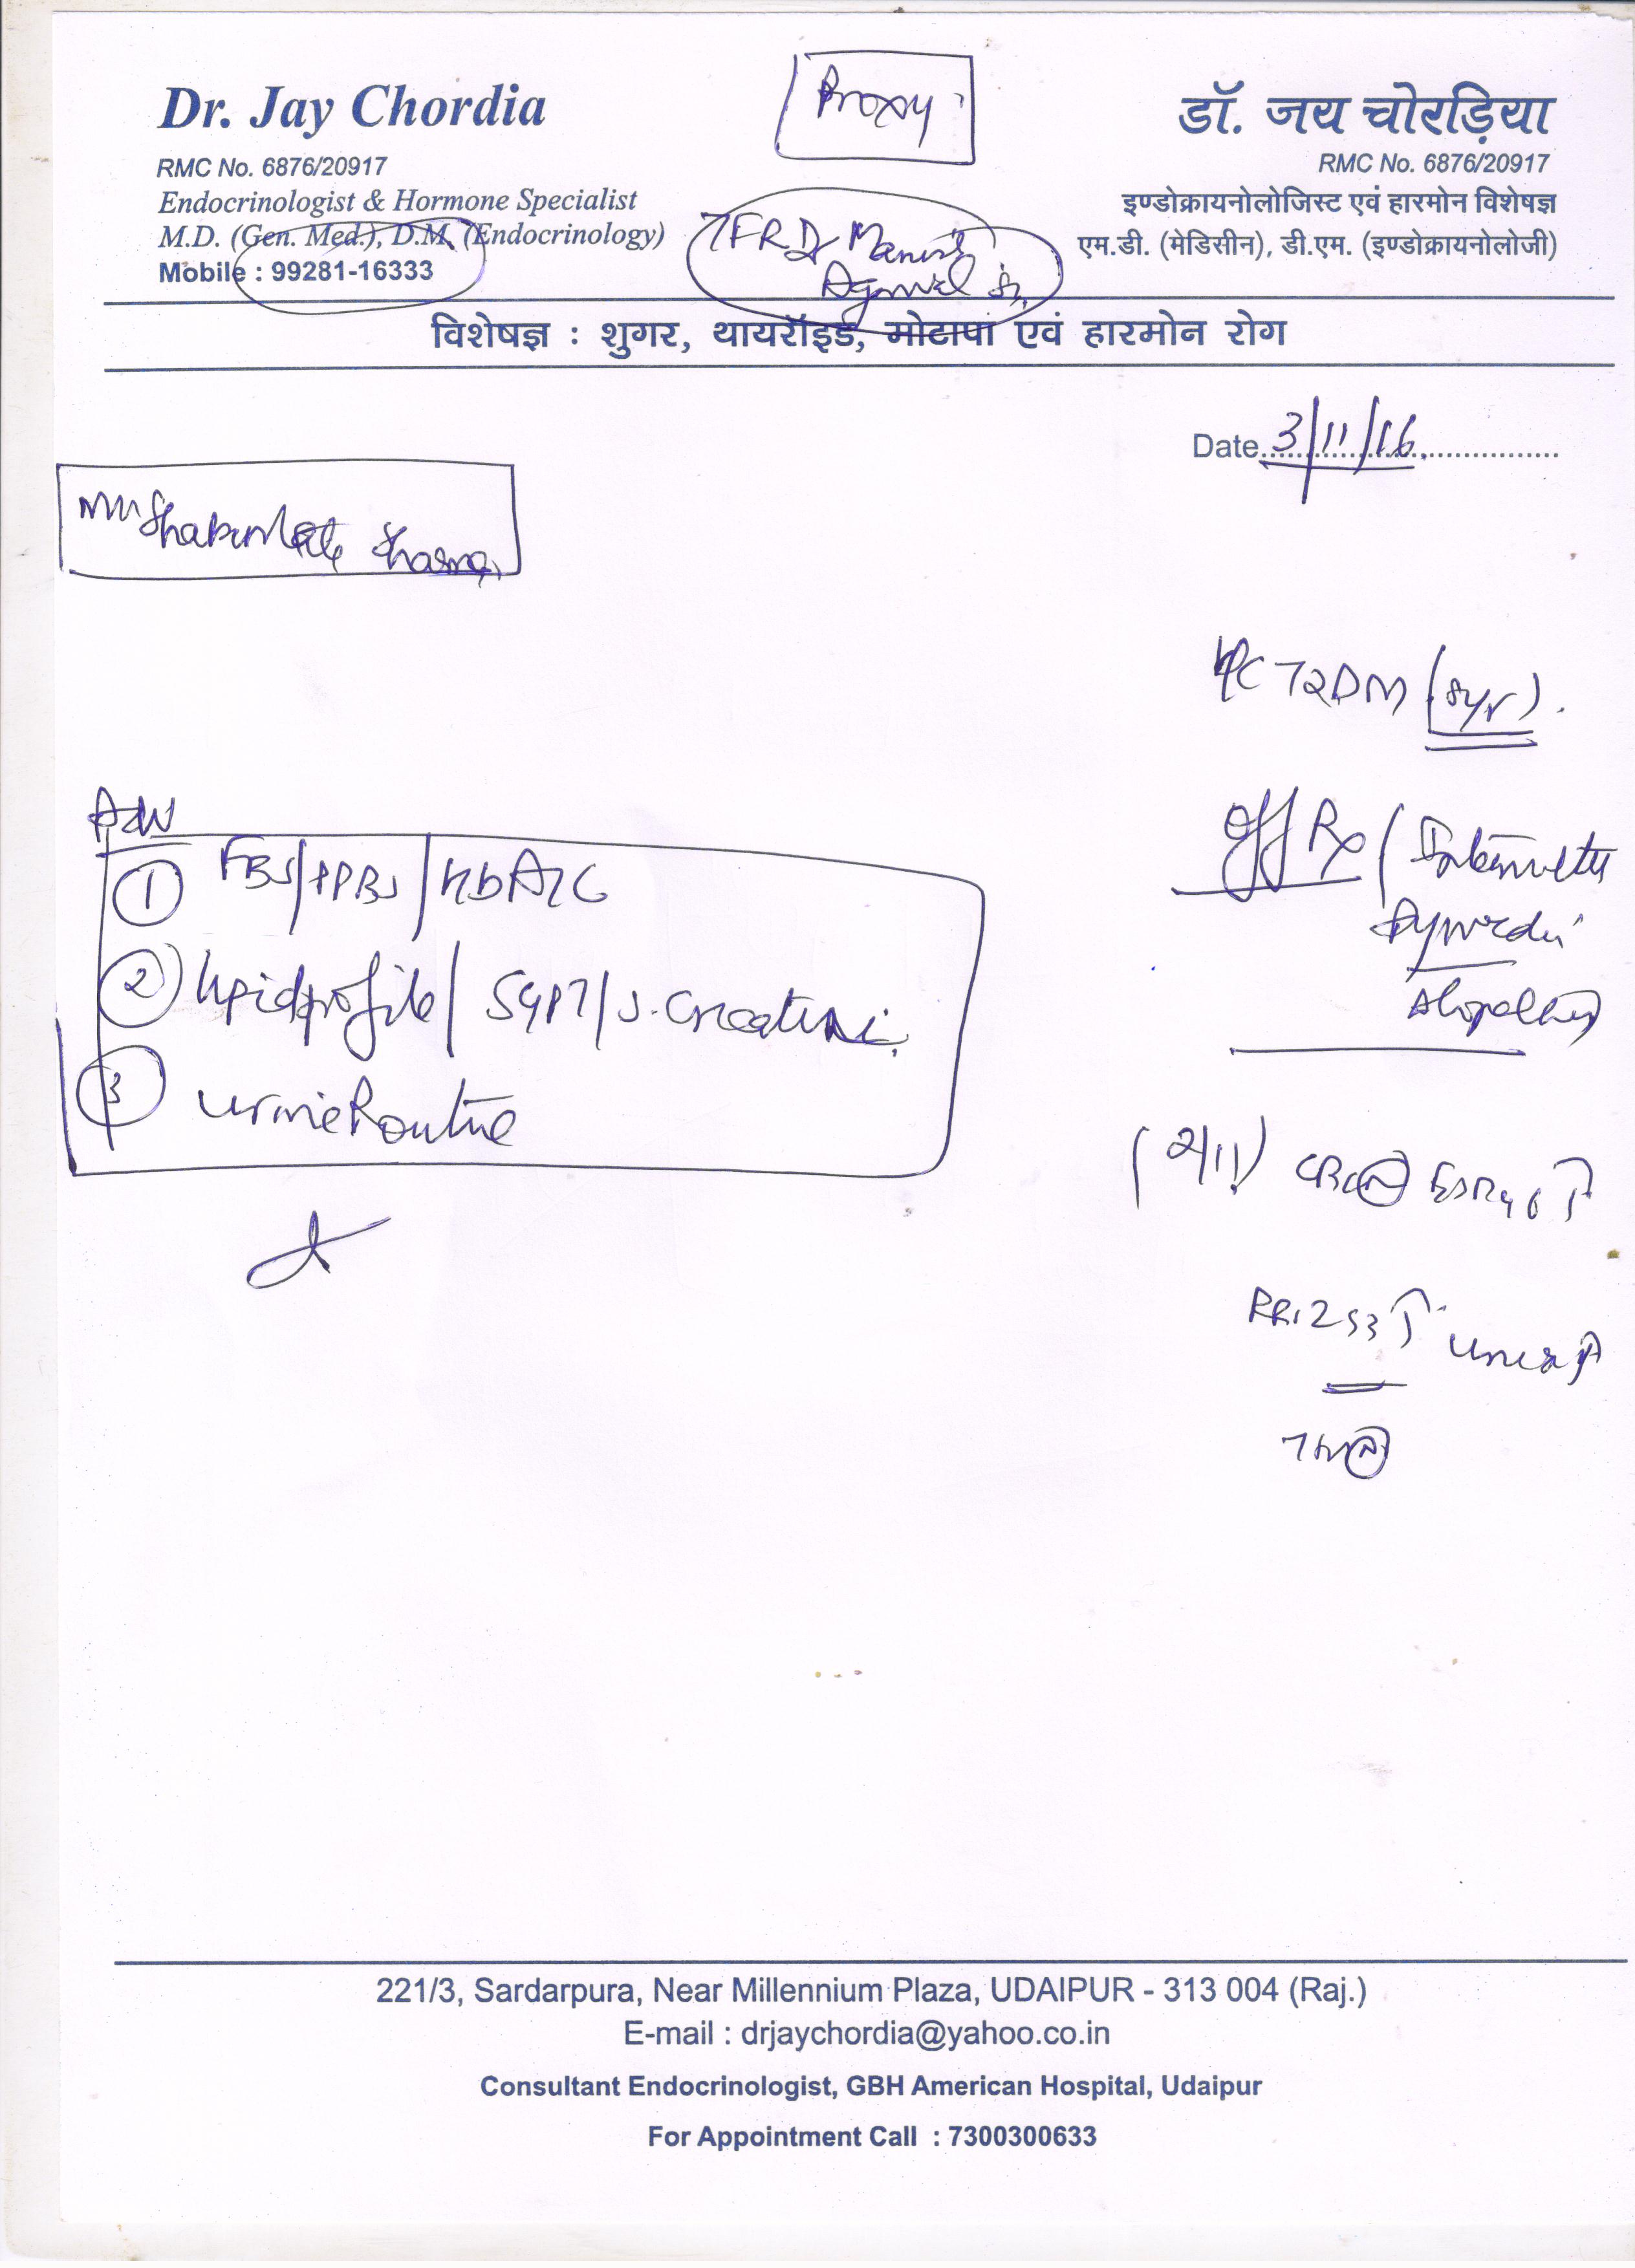 Proxy
Dr. Jay Chordia
RMC No. 6876/20917
Endocrinologist & Hormone Specialist
M.D. (Gen. Med.), D.M. (Endocrinology)
Mobile : 99281-16333
TFR Dr Manish
Agarwal Sr.
डॉ. जय चोरड़िया
RMC No. 6876/20917
इण्डोक्रायनोलोजिस्ट एवं हारमोन विशेषज्ञ
एम.डी. (मेडिसीन), डी.एम. (इण्डोक्रायनोलोजी)
विशेषज्ञ : शुगर, थायरॉइड, मोटापा एवं हारमोन रोग
Date 3/11/16
Sharma
T2DM (8yr).
off Rx (
Adv
① FBS/PPBS/HbA1C
② lipid profile/ SGPT/S. Creatini
③ urine Routine
(2/11) CBC Ⓝ ESR 46 ↑
RBS 253 ↑
221/3, Sardarpura, Near Millennium Plaza, UDAIPUR - 313 004 (Raj.)
E-mail : drjaychordia@yahoo.co.in
Consultant Endocrinologist, GBH American Hospital, Udaipur
For Appointment Call : 7300300633